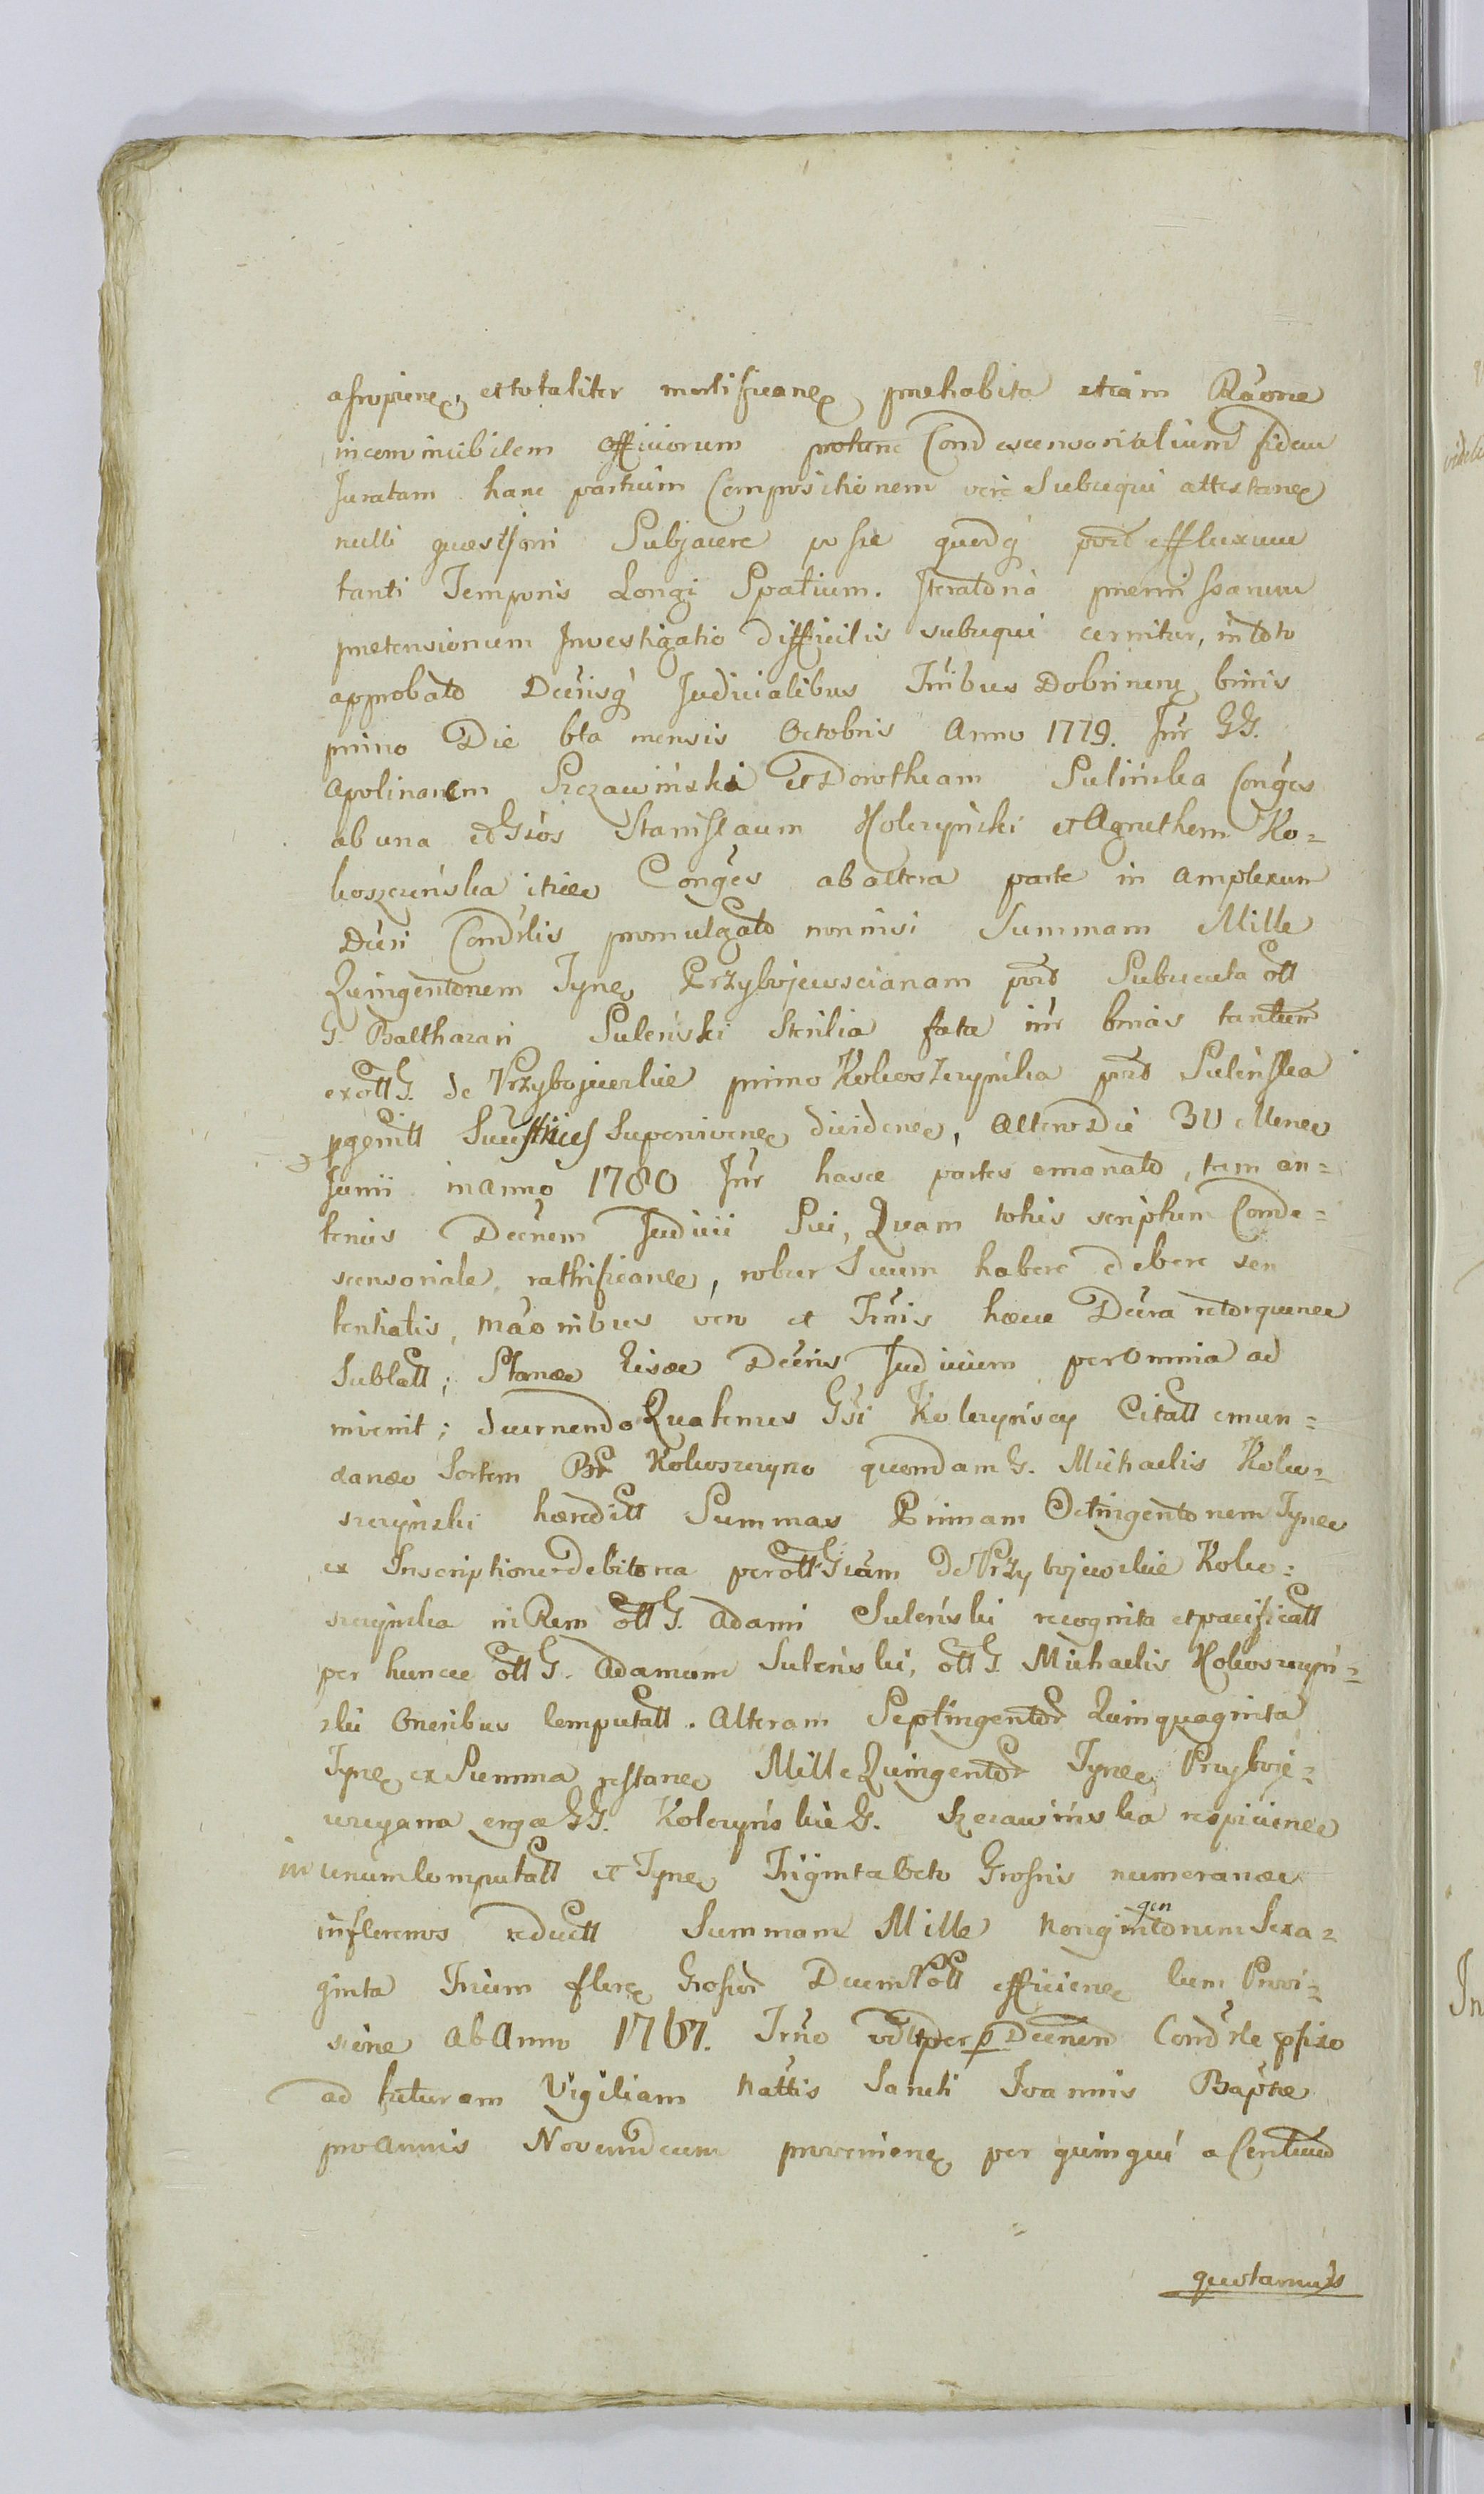 et totaliter mortificane, praehabita etiam Raone
inconvincibilem officiorum Condescensorialium fidem
Juratam hanc partium Compositionem vere Subsequi attestane
nulli quaestioni Subjacere posse quodq post effluxum
tanti Temporis Longi Spatium. Iterato praemissarum
praetensionum Investigatio difficilis subsequi cernitur, in toto
approbato Decrisq Judicialibus Tribus Dobrinen binis
primo Die 6ta mensis Octobris Anno 1779. Intr GG.
Apolinarem Szczawiński et Dorotheam Sulińska Conges
ab una et Gsos Stanislaum Koleczyński et Agnethem Ko=
koszczyńska itidee Conges ab altera parte in amplexum
Decri Condrlis promulgato non nisi Summam Mille
Quingentonem Tyne Przybojewscianam post Subsecuta ott
G. Balthazari Suleński Sterilia fata intr binas tantum
ex ott G. de Przybojewskie primo Kokoszczyńska post Sulińska
pgenitt Superivene dividenee, altero Die 30 Mene
Junii in anno 1780 Intr hasce partes emanato, tam an=
tenus Decnem Judicii Sui, Quam tohis scriptum Conde=
scensoriale rathificanee, robur Suum habere debere sen
tentiatis, maonibus vero et Trnis haecce Decra retorquenee
Sublatt; Stanee hisce Decris Judicium per omnia ad
invenit; decernendo Quatenus Gsi Koleczyńscy Citatt emun=
danae Sortem Bt Kokoszczyno quondam G. Michaelis Koko=
szczyński haereditt Summas Primam Octingentonem Tynee
ex Inscriptione debitorea per ott Gsam De Przybojewskie Koko=
szczyńska in Rem ott G. Adami Suleński recognita et pacificatt
per huncce ott G. Adamum Suleński, ott G. Michaelis Kokoszczyń=
ski Oneribus Computatt. Alteram Septingentor Quinquaginta
Tyne ex Summa restanee Mille Quingentor Tynee Przyboje=
wczyana erga GG. Koleczyńskie G. Szczawińska respicienee
in unum Computatt et Tyne Triginta Octo Grossis numeranae
in florenos reductt Summam Mille Nongingentonum Sexa=
ginta Trium flore Grossor Duum ott efficiene cum Provi=
sione ab Anno 1767. Trno Decnem Condrle pfixo
ad futuram Vigiliam Nattis Sancti Joannis Baptae
pro annis Novemdecim proveniene per quinque a Centum
quotannis